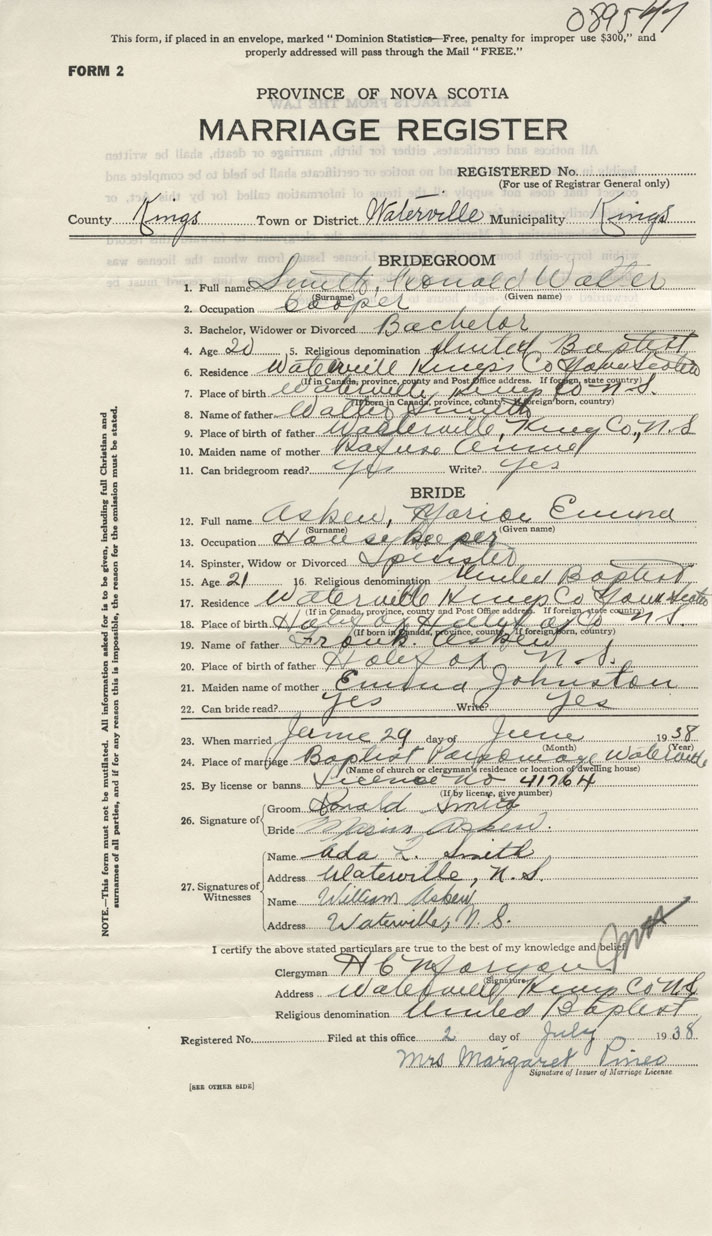 089547
This form, if placed in an envelope, marked "Dominion Statistics—Free, penalty for improper use $300," and
properly addressed will pass through the Mail "FREE."
FORM 2
PROVINCE OF NOVA SCOTIA
MARRIAGE REGISTER
REGISTERED No.
(For use of Registrar General only)
County Kings Town or District Waterville Municipality Kings
BRIDEGROOM
1. Full name Smith, Ronald Walter
(Surname) (Given name)
2. Occupation Cooper
3. Bachelor, Widower or Divorced Bachelor
4. Age 20 5. Religious denomination United Baptist
6. Residence Waterville Kings Co Nova Scotia
(If in Canada, province, county and Post Office address. If foreign, state country)
7. Place of birth Waterville Kings Co N.S.
(If born in Canada, province, county. If foreign born, country)
8. Name of father Walter Smith
9. Place of birth of father Waterville, King Co., N.S
10. Maiden name of mother Annie
11. Can bridegroom read? yes Write? yes
BRIDE
12. Full name Asken, Marion Emma
(Surname) (Given name)
13. Occupation Housekeeper
14. Spinster, Widow or Divorced Spinster
15. Age 21 16. Religious denomination United Baptist
17. Residence Waterville Kings Co Nova Scotia
(If in Canada, province, county and Post Office address. If foreign, state country)
18. Place of birth Halifax Halifax Co N.S.
(If born in Canada, province, county. If foreign born, country)
19. Name of father Frank Asken
20. Place of birth of father Halifax N.S.
21. Maiden name of mother Emma Johnston
22. Can bride read? yes Write? yes
23. When married June 29 day of June 1938
(Month) (Year)
24. Place of marriage Baptist Parsonage Waterville
(Name of church or clergyman's residence or location of dwelling house)
25. By license or banns Licence no 41764
(If by license, give number)
26. Signature of Groom Ronald Smith
Bride Marion Asken.
27. Signatures of Witnesses
Name Ada L. Smith
Address Waterville, N.S.
Name William Asken
Address Waterville, N.S.
I certify the above stated particulars are true to the best of my knowledge and belief.
Clergyman H C
(Signature)
Address Waterville Kings Co N.S.
Religious denomination United Baptist
Registered No. Filed at this office 2 day of July 1938
Mrs Margaret Pineo
Signature of Issuer of Marriage License
[SEE OTHER SIDE]
NOTE.—This form must not be mutilated. All information asked for is to be given, including full Christian and
surnames of all parties, and if for any reason this is impossible, the reason for the omission must be stated.